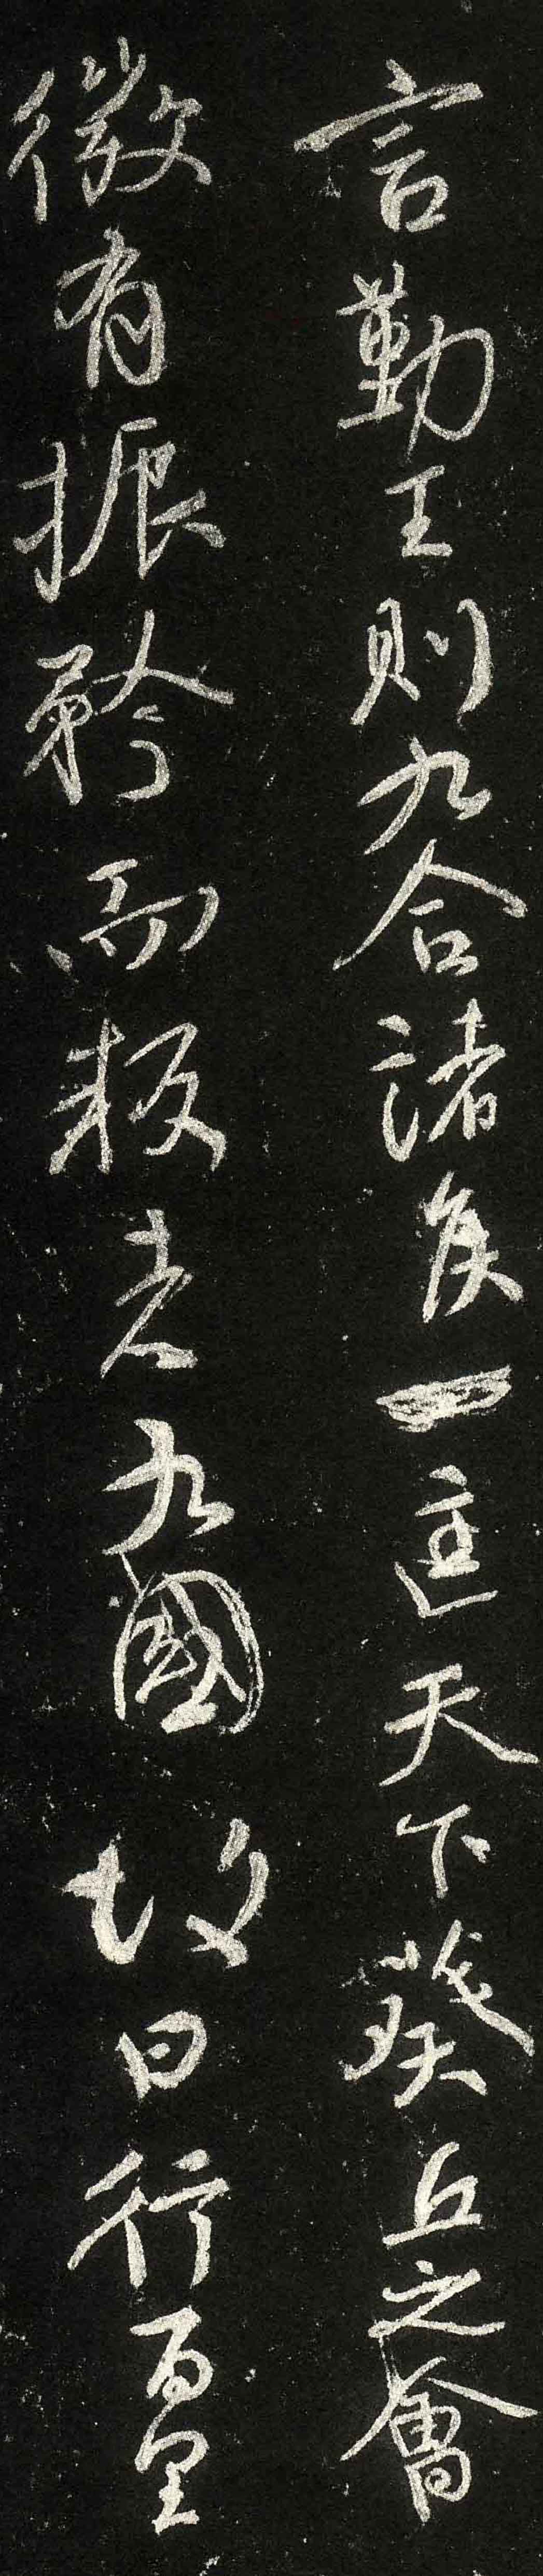 言勤王則九合諸侯一匡天下葵丘之會
微有振矜而叛者九國故曰行百里